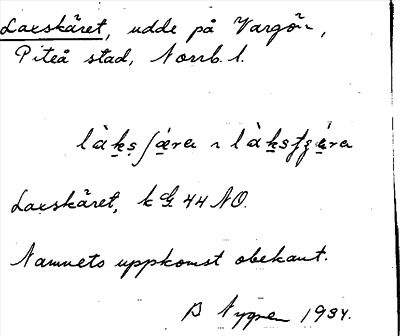 Laxskäret, udde på Vargön,
Piteå stad, Norrb. l.
làk̲s̲ʃæ̀ra ~ làk̲s̲
Laxskäret, k G 44 NO.
Namnets uppkomst obekant.
B Nygren 1934.